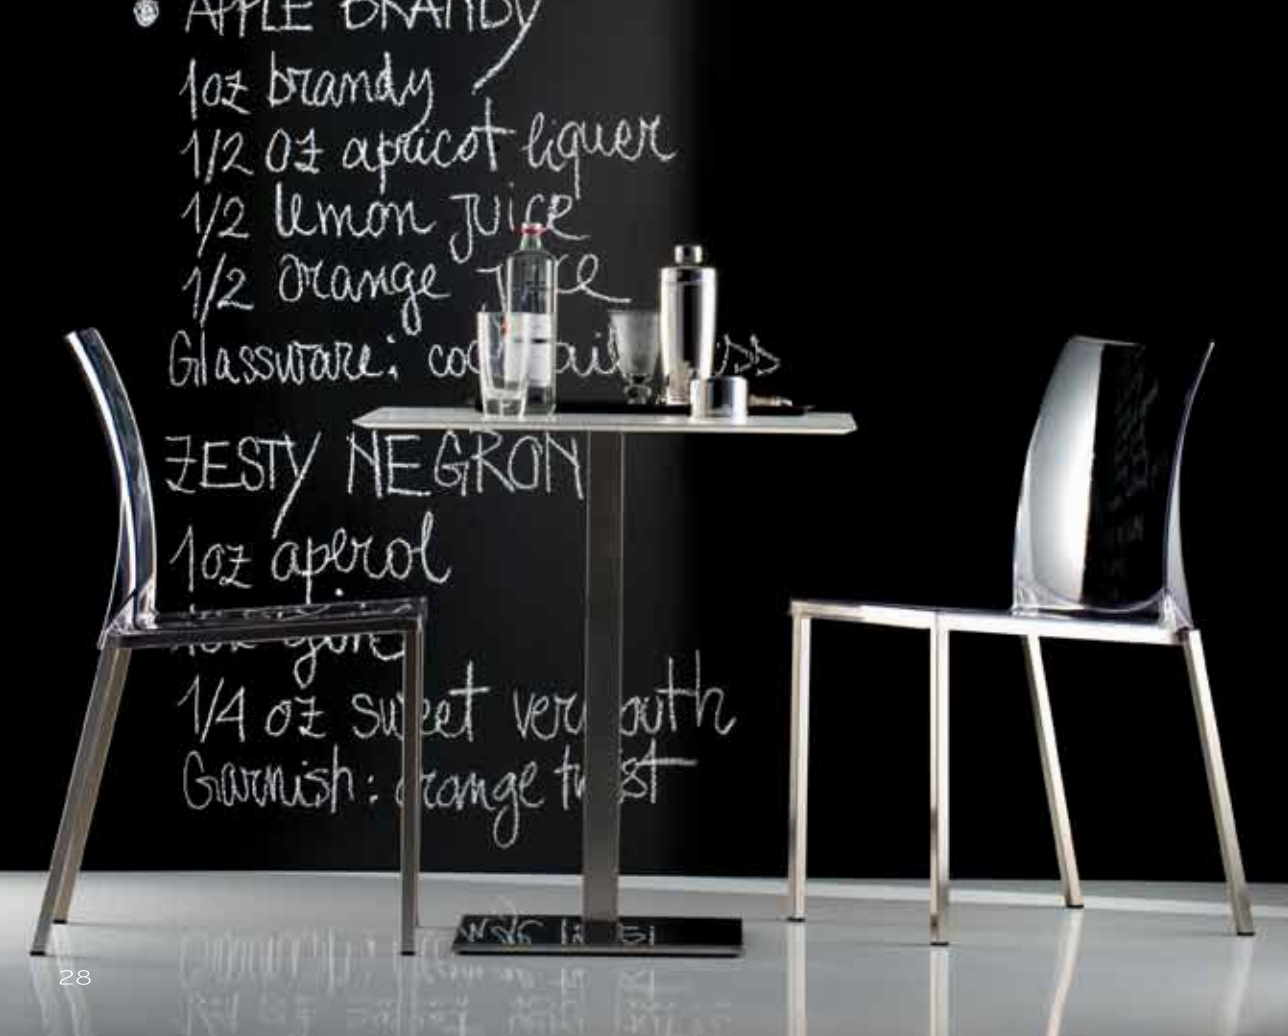 APPLE BRANDY
1oz brandy
1/2 oz apricot liquer
1/2 lemon juice
1/2 orange
Glassware:
ZESTY NEGRON
1oz aperol
gin
1/4 oz sweet vermouth
Garnish: orange twist
28